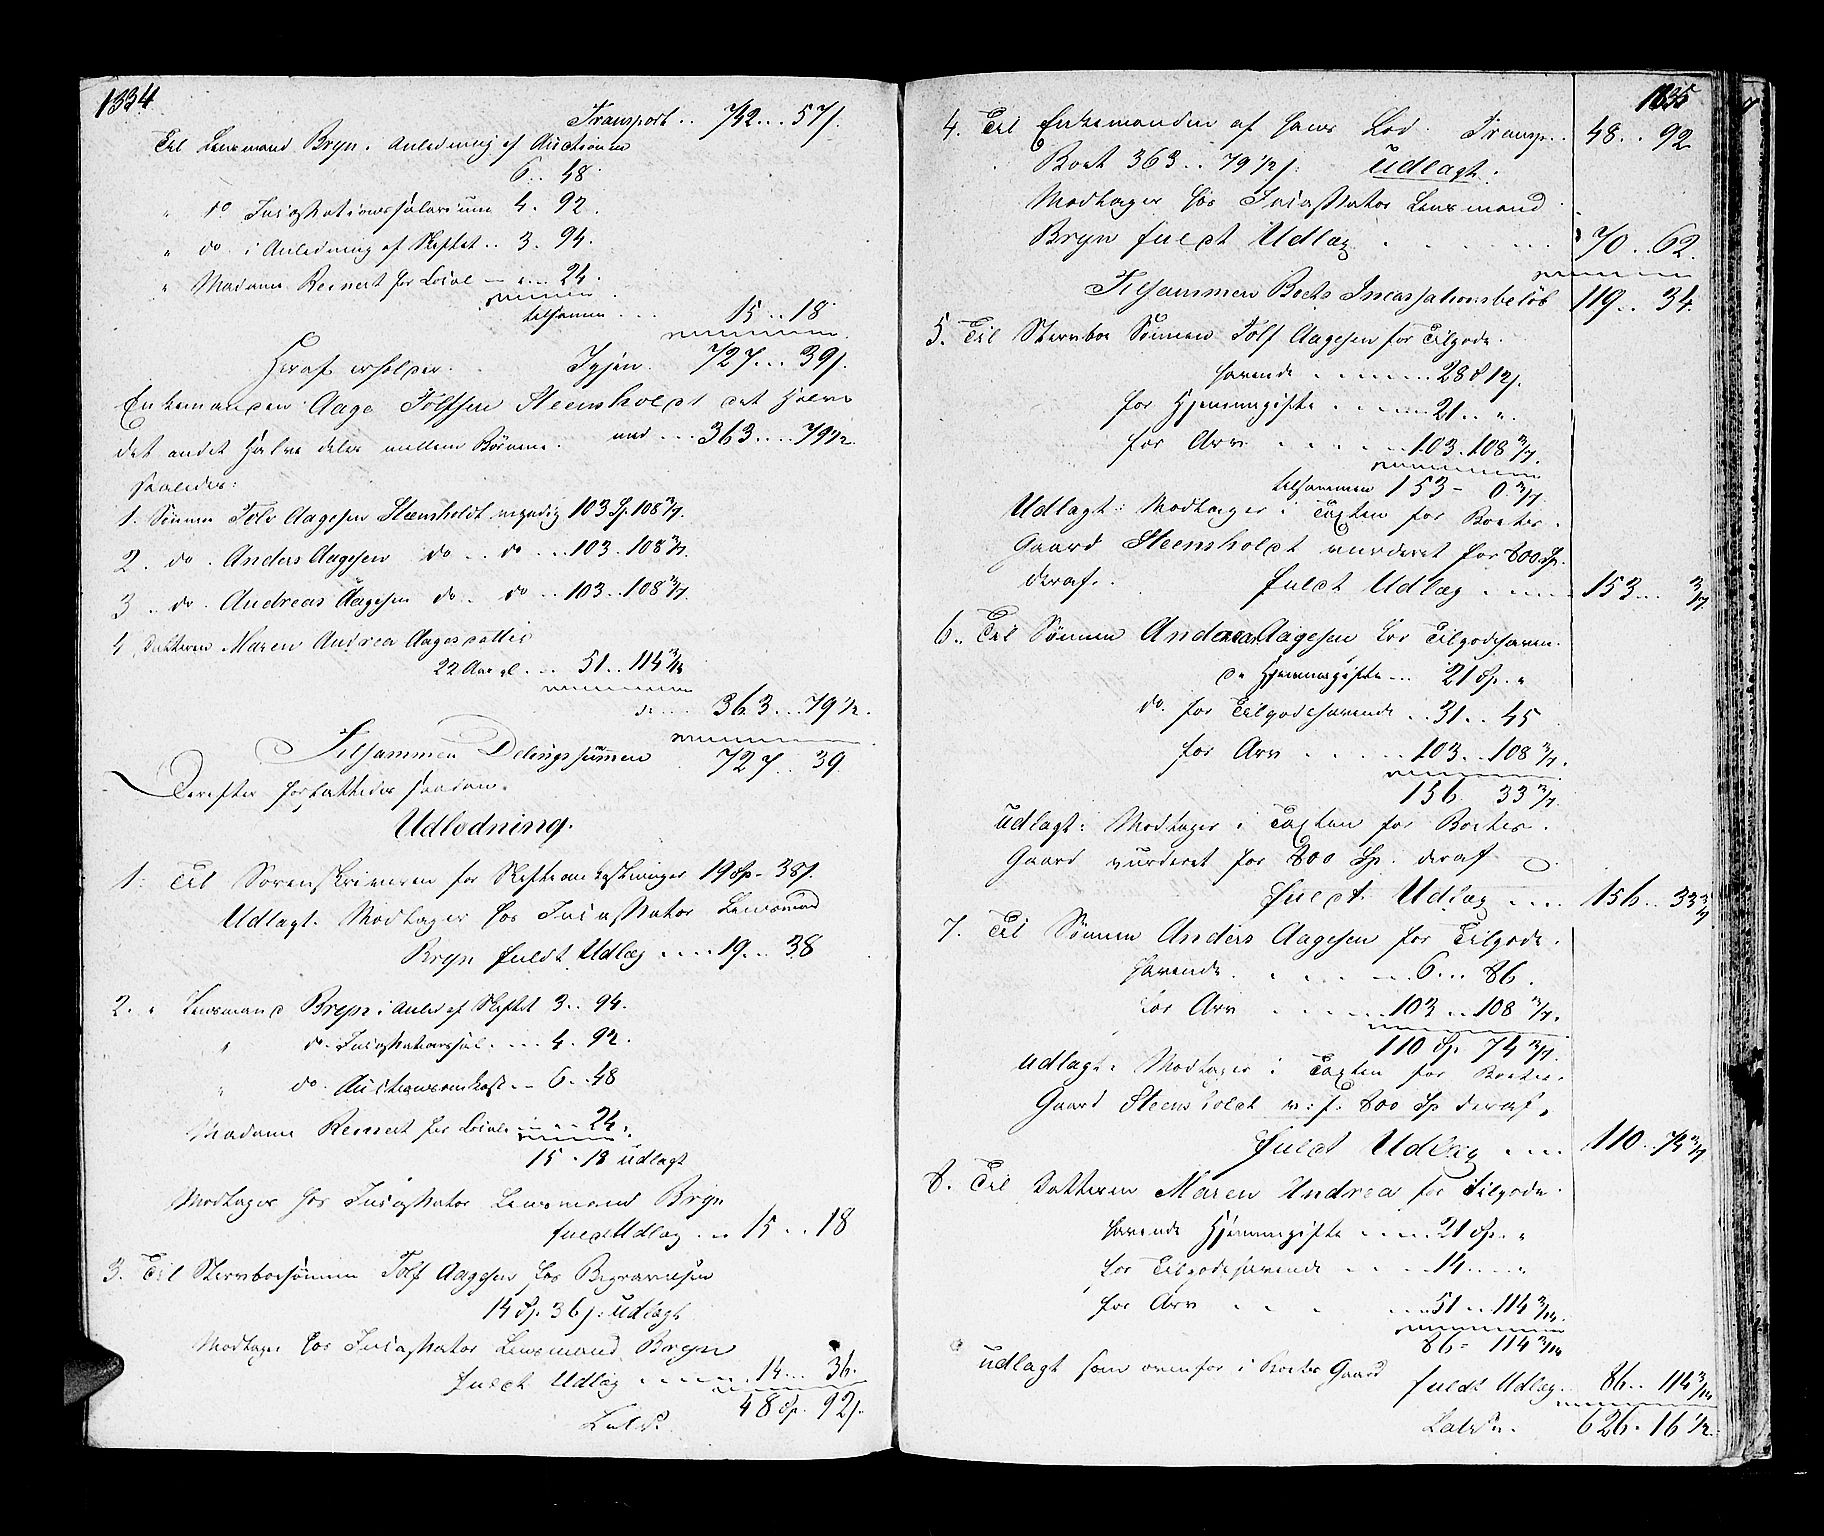 1334
Transport .. 742 .. 57 s.
Til Lensmand Bryn i Anledning af Auctionen
6 .. 48
" do Incassationssalarium 4 .. 92.
" do i Anledning af Skiftet .. 3 .. 94.
" Madame Reinert for Locale — " .. 24.
tilsammen .. 15 .. 18
Heraf erholder. Igjen. 727 .. 39 s.
Enkemanden Aage Tolfsen Steensholdt det Halve
med ... 363 .... 79 1/2.
det andet Halve deles mellem Børnene.
saaledes:
1. Sønnen Tolv Aagesen Steensholdt myndig 103 Sp 108 3/7.
2. do. Anders Aagesen do .. do .. 103 . 108 3/7.
3 .. do. Andreas Aagesen do .. do .. 103 .. 108 3/7.
4. Datteren Maren Andrea Aagesdatter
22 Aar gl. ... 51 .. 114 3/14
er ... 363 ... 79 1/2.
Tilsammen Delingssummen 727 .. 39.
Derefter forfattedes saadan.
Udlodning.
1. Til Sorenskriveren for Skifteomkostninger 19 Sp - 38 s.
Udlagt. Modtager hos Incassator Lensmand
Bryn fuldt Udlæg .... 19 ... 38
2. " Lensmand Bryn i Anled af Skiftet 3 .. 94.
" do. Incassationssal. .... 4 .. 92.
" do. Auctionsomkost. .. 6 .. 48
Madame Reinert for Locale .... 24.
15 . 18 udlagt
Modtager hos Incassator Lensmand Bryn
fuldt Udlæg .. 15 .. 18
3. Til Stervboesønnen Tolf Aagesen for Begravelsen
14 Sp. 36 s. udlagt
Modtager hos Incassator Lensmand Bryn
fuldt Udlæg ...... 14 ... 36.
48 Sp. 92 s.
Lateris
1335
4. Til Enkemanden af hans Lod. Transp .. 48 .. 92
Boet 363 .. 79 1/2 s. Udlagt.
Modtager hos Incassator Lensmand
Bryn fuldt Udlæg ...... 70 .. 62.
Tilsammen Boets Incassationsbeløb 119 .. 34.
5. Til Stervboe Sønnen Tolf Aagesen for Tilgode.
havende ...... 28 d 12 s.
for Hjemmegifte ...... 21 .. ".
for Arv ...... 103 . 108 3/7.
tilsammen 153 - 0 3/7
Udlagt: Modtager i Taxten for Boetes.
Gaard Steensholdt vurderet for 800 Sp.
deraf. fuldt Udlæg ..... 153 ... 3/7
6. Til Sønnen Andreas Aagesen for Tilgodehaven.
de Hjemmegifte ... 21 Sp. "
do. for Tilgodehavende .. 31 .. 45
for Arv ...... 103 .. 108 3/7.
156 33 3/7
udlagt: Modtager i Taxten for Boetes.
Gaard vurderet for 800 Sp. deraf
fuldt Udlæg .... 156 .. 33 3/7
7. Til Sønnen Anders Aagesen for Tilgode.
havende. ...... 6 ... 86.
for Arv ...... 103 .. 108 3/7.
110 Sp 74 3/7.
udlagt. Modtager i Taxten for Boetes.
Gaard Steensholdt v: f: 800 Sp deraf.
fuldt Udlæg .... 110 .. 74 3/7
8. Til Datteren Maren Andrea for Tilgode.
havende Hjemmegifte ..... 21 Sp. "
for Tilgodehavende ..... 14 ... "
for Arv ...... 51 .. 114 3/14.
86 - 114 3/14
udlagt som ovenfor i Boetes Gaard
fuldt Udlæg .. 86 .. 114 3/14
Lateris. 626 . 16 1/2.